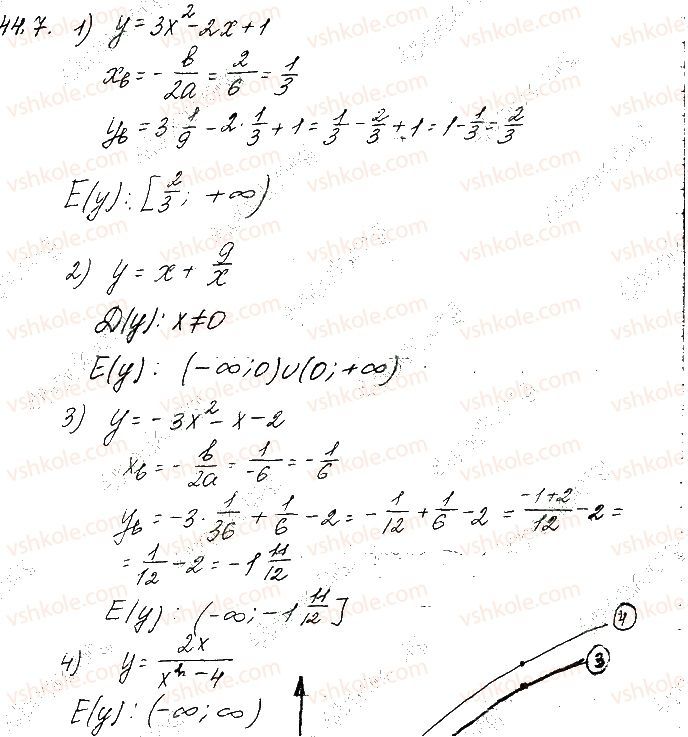 44.7. 1) y = 3x² - 2x + 1
x_в = - в/2a = 2/6 = 1/3
y_в = 3·1/9 - 2·1/3 + 1 = 1/3 - 2/3 + 1 = 1 - 1/3 = 2/3
E(y): [2/3; +∞)
2) y = x + 9/x
D(y): x ≠ 0
E(y): (-∞; 0)∪(0; +∞)
3) y = -3x² - x - 2
x_в = - в/2a = 1/-6 = -1/6
y_в = -3·1/36 + 1/6 - 2 = -1/12 + 1/6 - 2 = (-1+2)/12 - 2 =
= 1/12 - 2 = -1 11/12
E(y): (-∞; -1 11/12]
4
3
4) y = 2x/(x² - 4)
E(y): (-∞; ∞)
vshkole.com